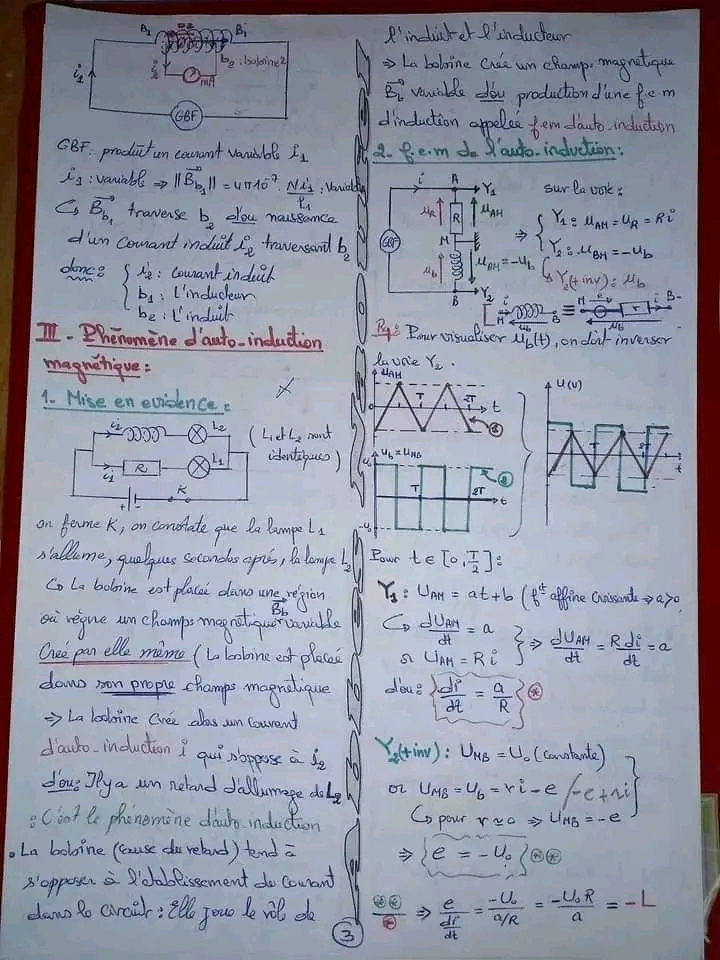 B₁ b₂ B₁
b₂ : bobine 2
i₁ i₂ mA
GBF
GBF : produit un courant variable i₁
i₁ : variable ⇒ ||B⃗b₁|| = 4π10⁻⁷ . N i₁ / l₁ : variable
↳ B⃗b₁ traverse b₂ d'où naissance
d'un courant induit i₂ traversant b₂
donc : { i₂ : courant induit
b₁ : l'inducteur
b₂ : l'induit
III - Phénomène d'auto-induction
magnétique :
1- Mise en evidence :
i₂ L₂
i₁ R L₁
K
( L₁ et L₂ sont
identiques )
on ferme K, on constate que la lampe L₁
s'allume, quelques secondes après, la lampe L₂
↳ La bobine est placée dans une région
où règne un champs magnétique B⃗b variable
Créé par elle même (La bobine est placée
dans son propre champs magnétique
⇒ La bobine crée alors un courant
d'auto-induction i qui s'oppose à i₂
d'où : Il y a un retard d'allumage de L₂
: C'est le phénomène d'auto-induction
• La bobine (cause du retard) tend à
s'opposer à l'etablissement du courant
dans le circuit : Elle joue le rôle de
3
l'induit et l'inducteur
⇒ La bobine crée un champs magnétique
B⃗b variable d'où production d'une f.e.m
d'induction appelée f.e.m d'auto-induction
2- f.e.m de l'auto-induction :
i A Y₁
u_R R u_AM
GBF M
u_b u_BM = -u_b
B Y₂
sur la voie :
⇒ { Y₁ : u_AM = u_R = Ri
Y₂ : u_BM = -u_b
↳ Y₂(+inv) : u_b
M i B ≡ M e r i B
u_b u_b
Rq : Pour visualiser u_b(t), on doit inverser
la voie Y₂ .
u_AM
0 T 2T t ①
u_b = u_MB
U₀ ②
T 2T t
-U₀
U(V)
T 2T t
Pour t ∈ [0, T/2] :
Y₁ : U_AM = at + b (fᶜᵗ affine croissante ⇒ a>0
↳ dU_AM/dt = a
or U_AM = Ri } ⇒ dU_AM/dt = R di/dt = a
d'où : { di/dt = a/R } ⊛
Y₂(+inv) : U_MB = U₀ (constante)
or U_MB = U_b = ri - e / -e + ri
↳ pour r ≃ 0 ⇒ U_MB = -e
⇒ { e = -U₀ } ⊛⊛
⊛⊛/⊛ ⇒ e / (di/dt) = -U₀ / (a/R) = -U₀R / a = -L